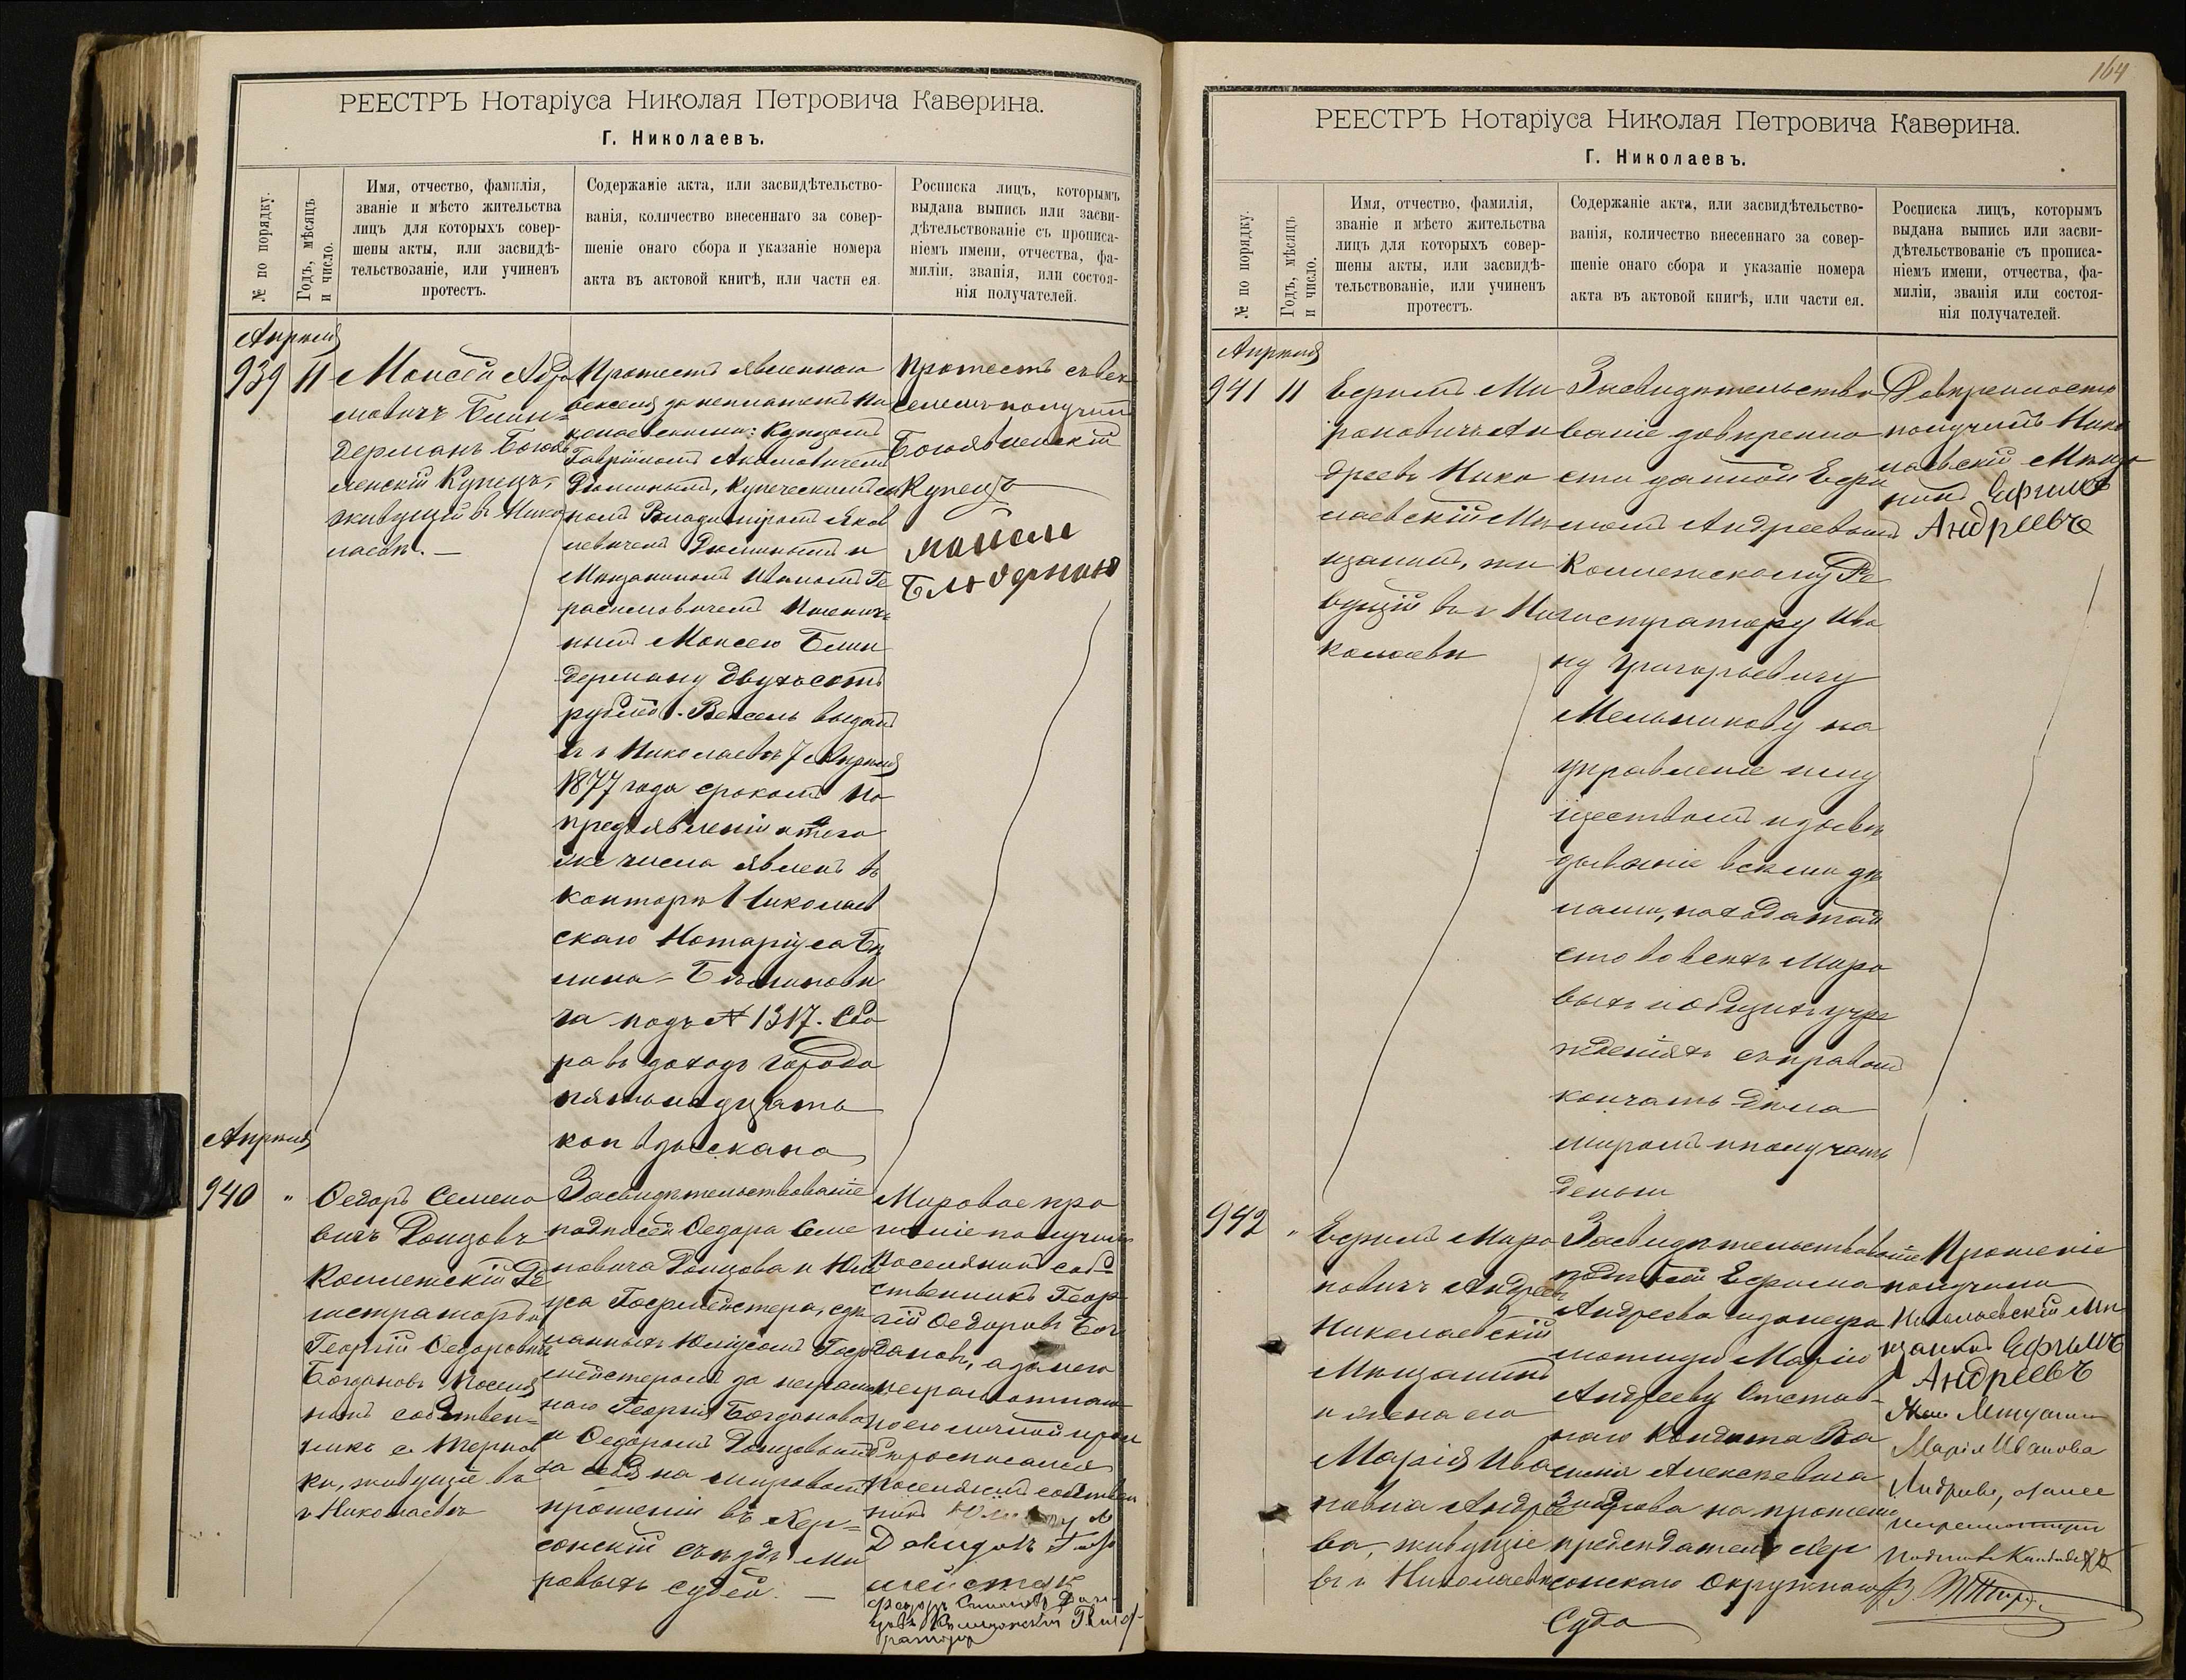 РЕЕСТРЪ Нотаріуса Николая Петровича Каверина.
Г. Николаевъ.
№ по порядку.
Годъ, мѣсяцъ
и число.
Имя, отчество, фамилія,
званіе и мѣсто жительства
лицъ для которыхъ совер-
шены акты, или засвидѣ-
тельствованіе, или учиненъ
протестъ.
Содержаніе акта, или засвидѣтельство-
ванія, количество внесеннаго за совер-
шеніе онаго сбора и указаніе номера
акта въ актовой книгѣ, или части ея.
Росписка лицъ, которымъ
выдана выпись или засви-
дѣтельствованіе съ прописа-
ніемъ имени, отчества, фа-
миліи, званія, или состоя-
нія получателей.
Апрѣля
939 11
Моисей Абра
мовичъ Блин-
дерманъ Богояв
ленскій Купецъ,
живущій въ Нико
лаевѣ. —
Протестъ явленнаго
векселя за неплатежъ Ни
колаевскими: Купцомъ
Гавріиломъ Акимовичемъ
купеческимъ сы
номъ Владиміромъ Яков
левичемъ и
Мѣщаниномъ Иваномъ Ге
расимовичемъ
нымъ Моисею Блин
дерману двухъсотъ
рублей. Вексель выданъ
въ г Николаевѣ 7 Апрѣля
1877 года срокомъ по
предъявленіи и того
же числа явленъ въ
конторѣ Николаев
скаго Нотаріуса Бѣ
лина-
ча подъ № 1317. Сбо
ра въ доходъ города
пятьнадцать
коп взыскано
Протестъ съ век
селемъ получилъ
Богоявленскій
Купецъ
Апрѣля
940 "
Ѳедоръ Семено
вичъ Донцовъ
Коллежскій Ре
гистраторъ и
Георгій Ѳедоровичъ
Богдановъ Поселя
нинъ собствен-
никъ с. Тернов
ки, живущіе въ
г Николаевѣ
Засвидѣтельствованіе
подписей Ѳедора Семе
новича Донцова и Юлі
уса Гофмейстера, сдѣ
ланныхъ Юліусомъ Гоф
мейстеромъ за неграмот
наго Георгія Богданова
и Ѳедоромъ Донцовымъ
за себя на мировомъ
прошеніи въ Хер-
сонскій съѣздъ ми
ровыхъ судей. —
Мировое про
шеніе получилъ
Поселянинъ соб
ственникъ Геор
гій Ѳедоровъ Бог
дановъ, а за него
неграмотнаго
по его личной прось
бѣ росписался
Поселянинъ собствен
никъ
164
РЕЕСТРЪ Нотаріуса Николая Петровича Каверина.
Г. Николаевъ.
№ по порядку.
Годъ, мѣсяцъ
и число.
Имя, отчество, фамилія,
званіе и мѣсто жительства
лицъ для которыхъ совер-
шены акты, или засвидѣ-
тельствованіе, или учиненъ
протестъ.
Содержаніе акта, или засвидѣтельство-
ванія, количество внесеннаго за совер-
шеніе онаго сбора и указаніе номера
акта въ актовой книгѣ, или части ея.
Росписка лицъ, которымъ
выдана выпись или засви-
дѣтельствованіе съ прописа-
ніемъ имени, отчества, фа-
миліи, званія или состоя-
нія получателей.
Апрѣля
941 11
Ефимъ Ми
роновичъ Ан
дреевъ Нико
лаевскій Мѣ
щанинъ, жи
вущій въ г Ни
колаевѣ
Засвидѣтельство
ваніе довѣренно
сти данной Ефи
момъ Андреевымъ
Коллежскому Ре
гистратору Ива
ну Григорьевичу
Мельникову на
управленіе иму
ществомъ и завѣ
дываніе всѣми дѣ
лами, на ходатай
ство во всѣхъ Миро
выхъ и общихъ учре
жденіяхъ съ правомъ
кончать дѣла
миромъ и получать
деньги
Довѣренность
получилъ Нико
лаевскій Мѣща
нинъ Ефимъ
Андреевъ
942 "
Ефимъ Миро
новичъ Андреевъ
Николаевскій
Мѣщанинъ
и жена его
Марія Ива
новна Андрее
ва, живущіе
въ г Николаевѣ
Засвидѣтельствованіе
подписей Ефима
Андреева и за негра
мотную Марію
Андрееву Отстав-
наго Ва
силія Алексѣевича
на прошеніи
предсѣдателю Хер
сонскаго Окружнаго
Суда
Прошеніе
получили
Николаевскій Мѣ
щанинъ Ефимъ
Андреевъ
Марія Иванова
Андреева, а за нее